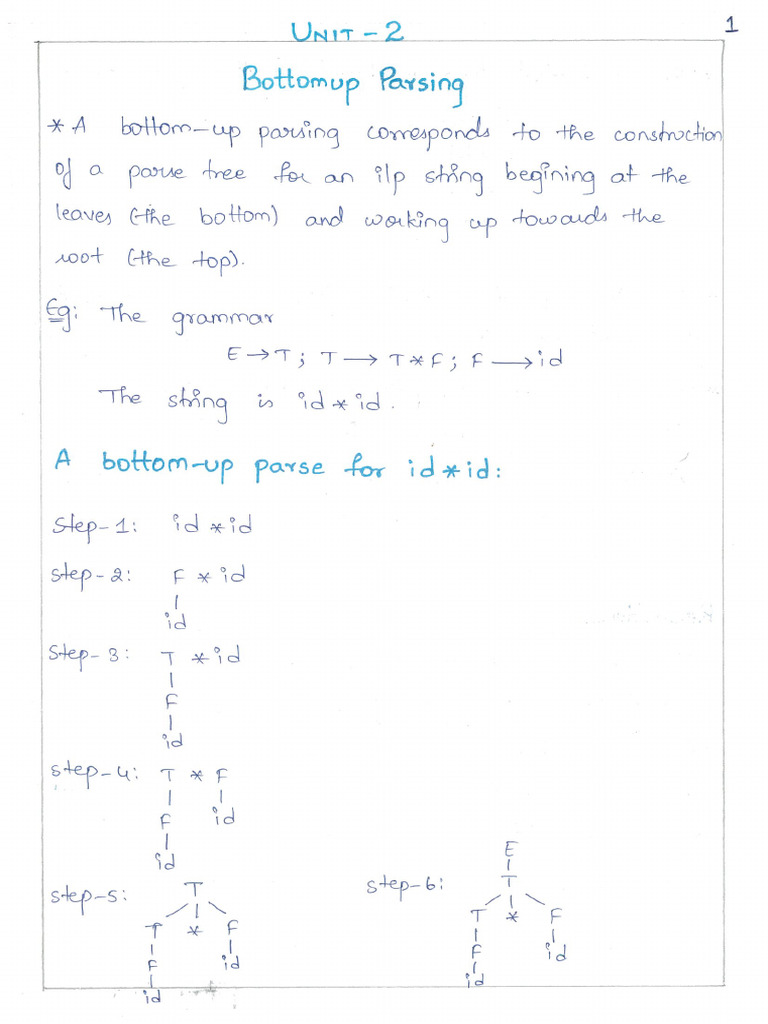 UNIT - 2
1
Bottomup Parsing
* A bottom-up parsing corresponds to the construction
of a parse tree for an i/p string begining at the
leaves (the bottom) and working up towards the
root (the top).
Eg: The grammar
E → T; T → T * F; F → id
The string is id * id.
A bottom-up parse for id * id:
Step-1: id * id
Step-2: F * id
id
Step-3: T * id
F
id
Step-4: T * F
F id
id
Step-5: T
T * F
F id
id
Step-6: E
T
T * F
F id
id